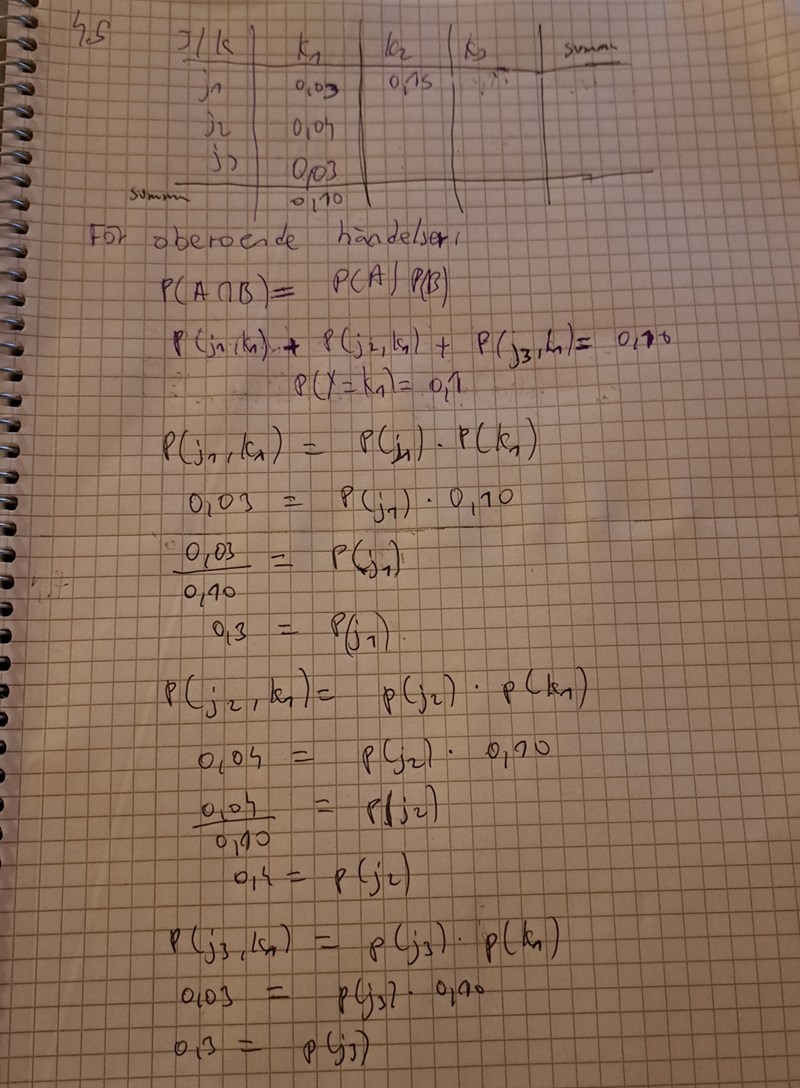 45
J/K k1 k2 k3 summa
j1 0,03 0,15
j2 0,04
j3 0,03
summa 0,10
För oberoende händelser:
P(A∩B)= P(A) P(B)
P(j1,k1) + P(j2,k1) + P(j3,k1)= 0,10
P(Y=k1)= 0,1
P(j1,k1) = P(j1) · P(k1)
0,03 = P(j1) · 0,10
0,03/0,10 = P(j1)
0,3 = P(j1).
P(j2,k1)= p(j2) · p(k1)
0,04 = p(j2) · 0,10
0,04/0,10 = P(j2)
0,4 = p(j2)
P(j3,k1) = p(j3) · p(k1)
0,03 = p(j3) · 0,10
0,3 = p(j3)